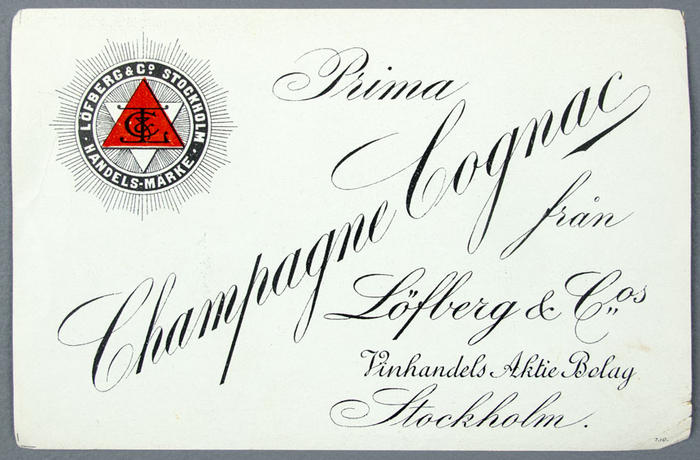 LÖFBERG & Cº STOCKHOLM
HANDELS-MÄRKE
Prima
Champagne Cognac
från
Löfberg & C:os
Vinhandels Aktie Bolag
Stockholm.